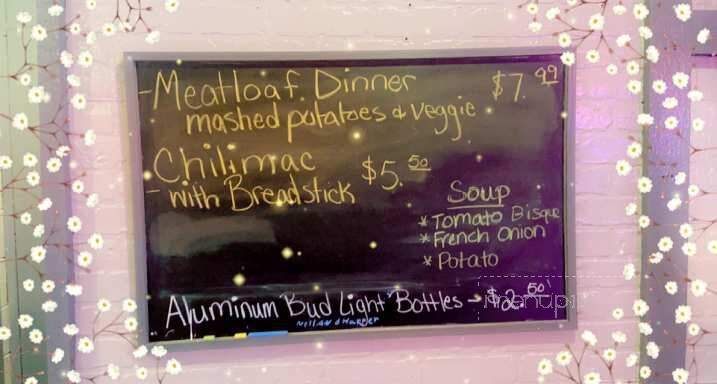 -Meatloaf Dinner $7.99
mashed potatoes & Veggie
Chilimac $5.50
- with Breadstick
Soup
* Tomato Bisque
* French Onion
* Potato
Aluminum Bud Light Bottles → $2.50